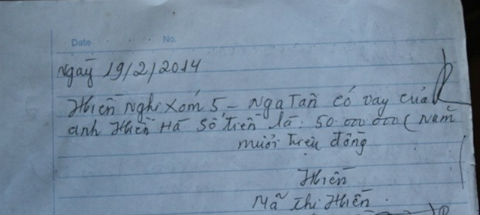 Date No.
Ngày 19/2/2014
Hiền Nghi Xóm 5 - Nga Tân có vay của
anh Hiền Hà Số tiền là: 50.000.000 ( Năm
mười triệu đồng
Hiền
Mã Thị Hiền